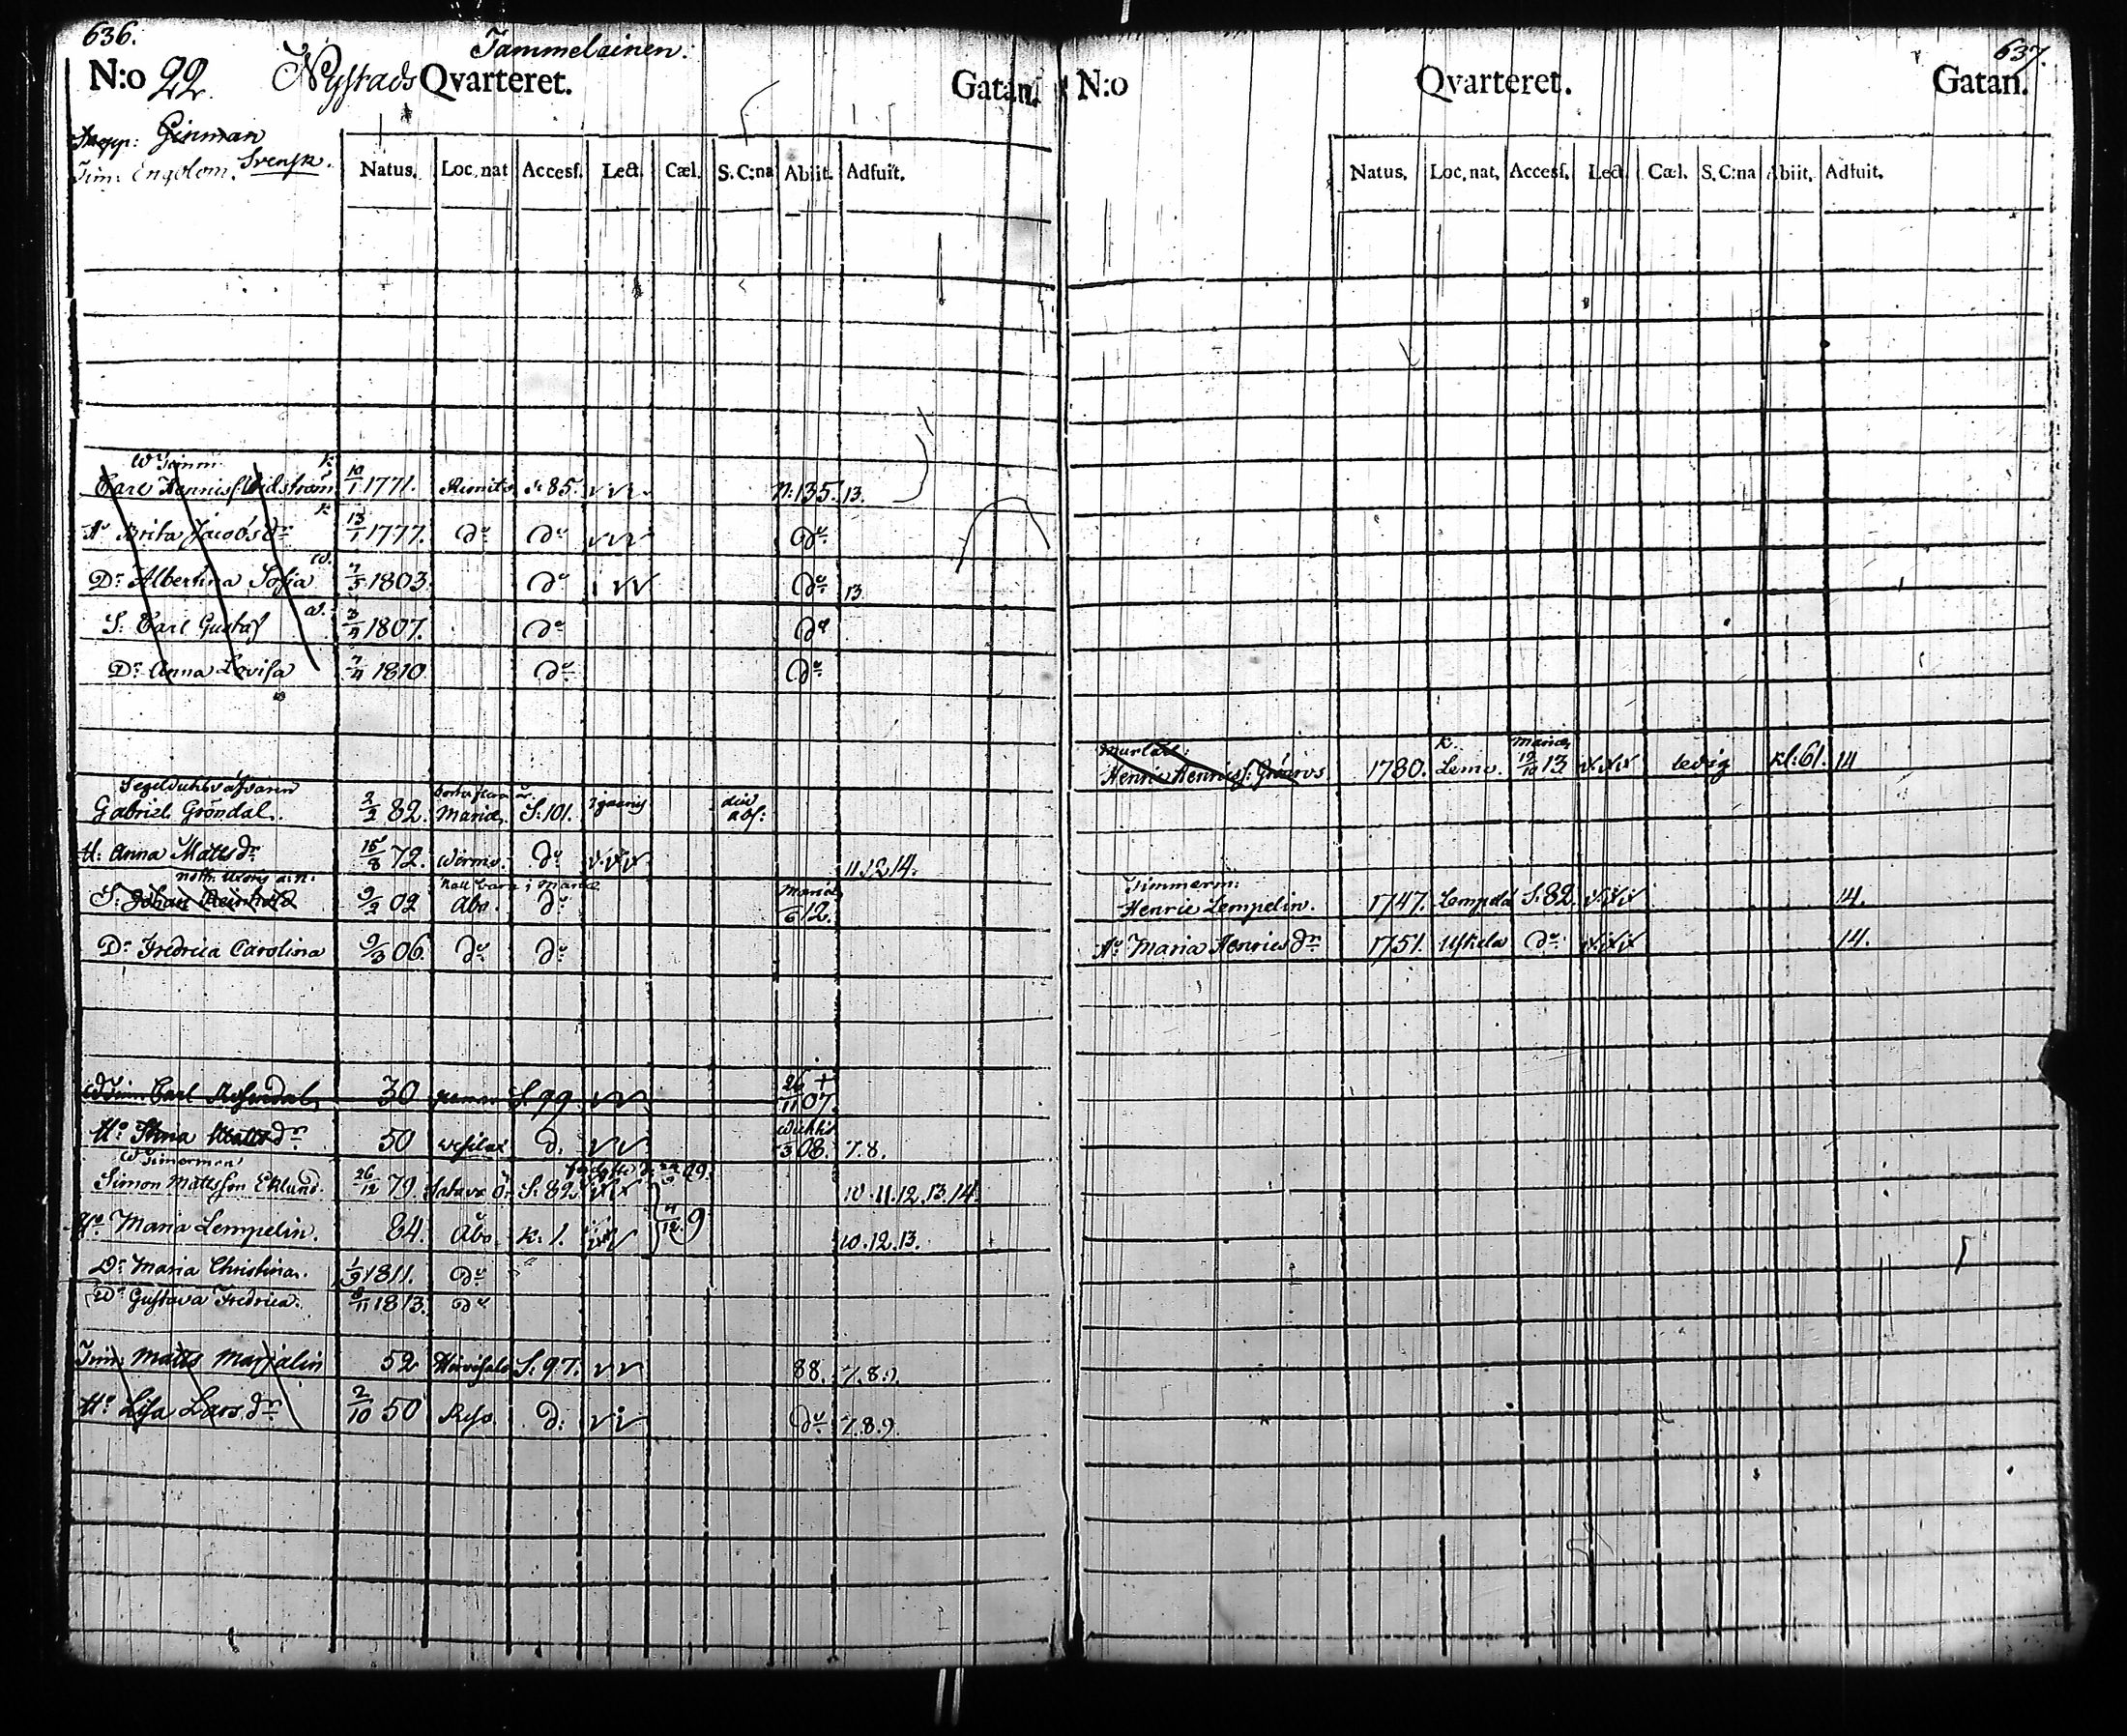 636.
Tammelainen.
N:o 22. Nystads Qvarteret. Gatan.
Ginman
Tim: Engblom. Svensk.
Natus. Loc. nat Accesf. Lect. Cæl. S. C:na Abiit. Adfuit.
k.
Carl Henricss Widström 10/1 1771. Rimito S. 85. N:135. 13.
k
Brita Jacobs dr 13/1 1777. do do do
w.
Dr Albertina Sofia 7/5 1803. do do 13
w.
S: Carl Gustaf 3/4 1807. do do
Dr Anna Lovisa 7/4 1810 do do
Segelduksväfvaren
Gabriel Gröndal. 2/2 82. Mariæ. S:101.
H: Anna Matts dr 15/8 72. Wirmo. do 11.12.14.
S: Johan Reinhold 9/2 02 Åbo. do Mariæ 6 12.
Dr Fredrica Carolina 9/3 06. do do
Carl 30 S. 99 26/11 07. +
Hu Anna Matts dr 50 d. 3 08. 7.8.
W Timerman
Simon Mattsson Eklund. 26/12 79. S: 82. 10.11.12.13.14.
Hu Maria Lempelin. 84. Åbo. K. 1. 4/12 9 10.12.13.
Dr Maria Christina. 1/9 1811. do
Dr Gustava Fredrica. 8/11 1813. do
Tim: Matts Marjalin 52 S. 97. 88. 7.8.9.
Hu Lisa Lars dr 2/10 50 Reso. d: do 7.8.9.
637.
N:o Qvarteret. Gatan.
Natus. Loc. nat. Accesf. Lect. Cæl. S. C:na Abiit. Adfuit.
k. Mariæ
Henric Henricss: 1780. Lemo. 19/10 13. ledig kl:61. 14
Timmerm:
Henric Lempelin. 1747. S:82. 14.
Hu Maria Henrics dr 1751. Uskela do 14.